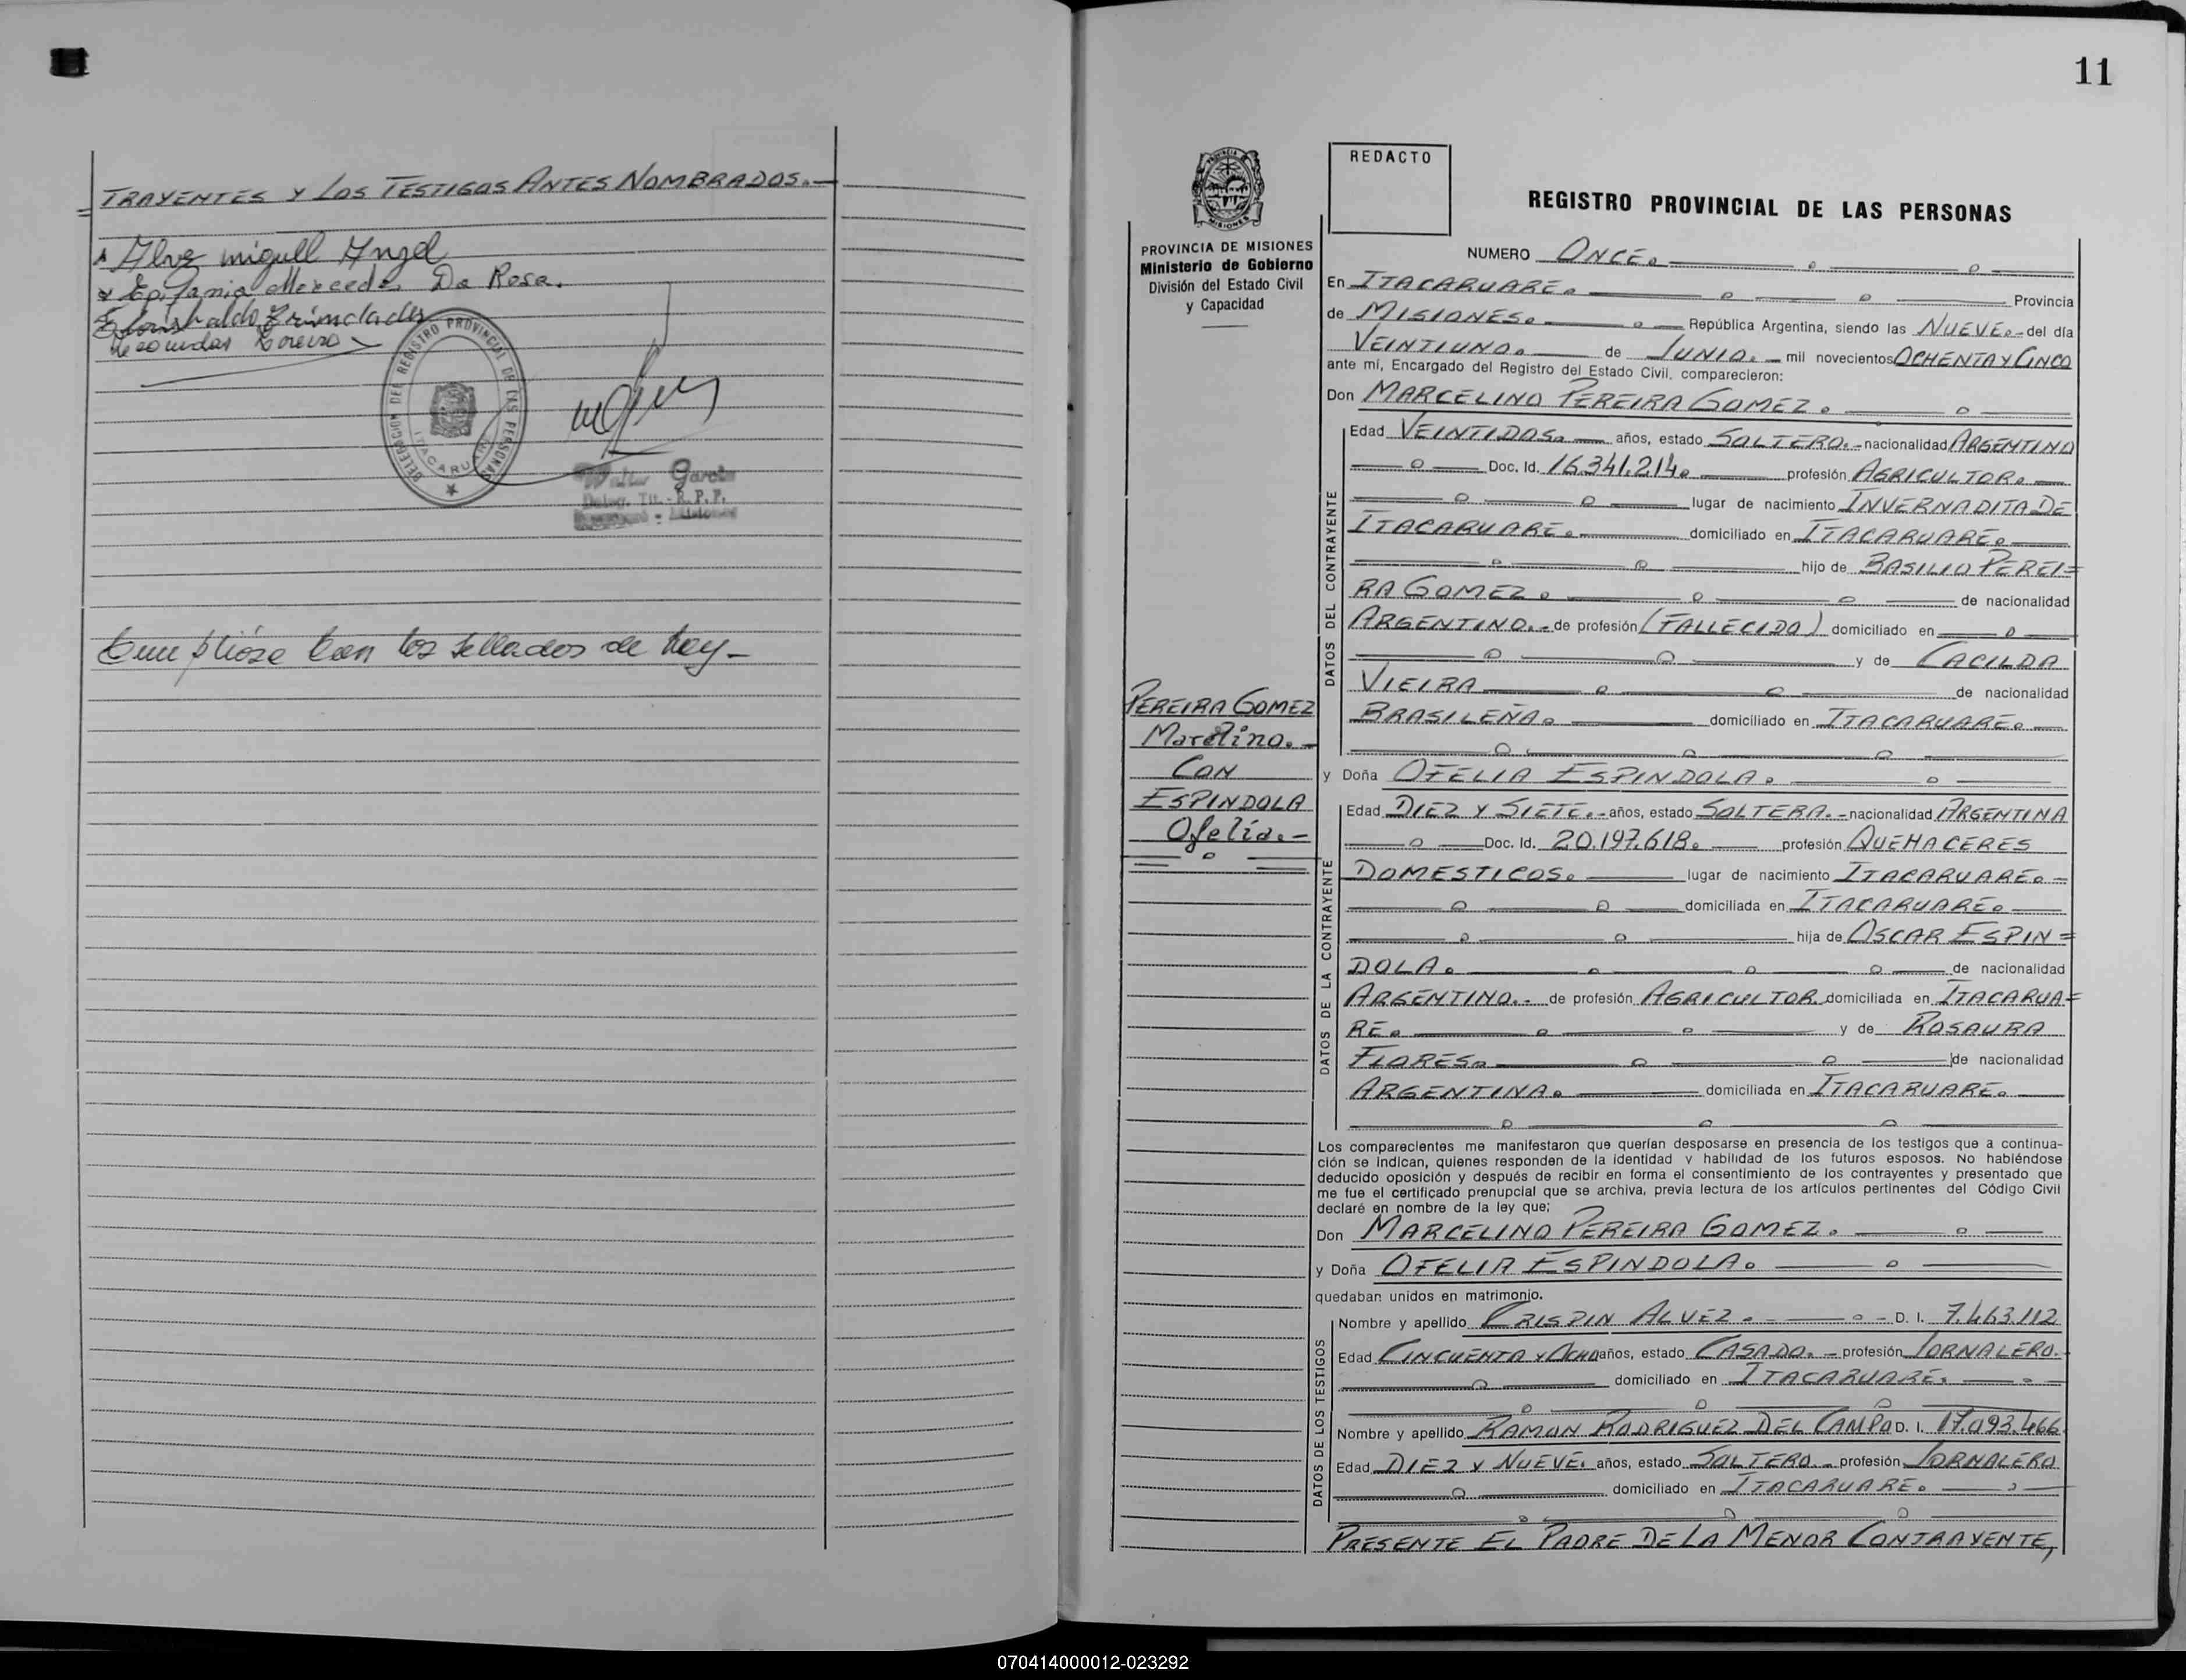 TRAYENTES Y LOS TESTIGOS ANTES NOMBRADOS.
Alvez miguell Angel
Epifania Mercedes Da Rosa.
Trindade
DELEGACION DEL REGISTRO PROVINCIAL DE LAS PERSONAS
ITACARUARE
Walter García
Deleg. Tit. - R. P. P.
- Misiones
Cumplióse con los sellados de ley-
11
REDACTO
REGISTRO PROVINCIAL DE LAS PERSONAS
PROVINCIA DE MISIONES
Ministerio de Gobierno
División del Estado Civil
y Capacidad
NUMERO ONCE.
En ITACARUARE. Provincia
de MISIONES. República Argentina, siendo las NUEVE. del día
VEINTIUNO. de JUNIO. mil novecientos OCHENTA Y CINCO
ante mí, Encargado del Registro del Estado Civil, comparecieron:
Don MARCELINO PEREIRA GOMEZ.
DATOS DEL CONTRAYENTE
Edad VEINTIDOS. años, estado SOLTERO. nacionalidad ARGENTINO
Doc. Id. 16.341.214. profesión AGRICULTOR.
lugar de nacimiento INVERNADITA DE
ITACARUARE. domiciliado en ITACARUARE.
hijo de BASILIO PEREI=
RA GOMEZ. de nacionalidad
ARGENTINO. de profesión (FALLECIDO) domiciliado en
y de CACILDA
VIEIRA de nacionalidad
BRASILEÑA. domiciliado en ITACARUARE.
PEREIRA GOMEZ
Marcelino.-
CON
ESPINDOLA
Ofelia.-
y Doña OFELIA ESPINDOLA.
DATOS DE LA CONTRAYENTE
Edad DIEZ Y SIETE. años, estado SOLTERA. nacionalidad ARGENTINA
Doc. Id. 20.197.618. profesión QUEHACERES
DOMESTICOS. lugar de nacimiento ITACARUARE.
domiciliada en ITACARUARE.
hija de OSCAR ESPIN=
DOLA. de nacionalidad
ARGENTINO. de profesión AGRICULTOR domiciliada en ITACARUA=
RE. y de ROSAURA
FLORES. de nacionalidad
ARGENTINA. domiciliada en ITACARUARE.
Los comparecientes me manifestaron que querían desposarse en presencia de los testigos que a continua-
ción se indican, quienes responden de la identidad y habilidad de los futuros esposos. No habiéndose
deducido oposición y después de recibir en forma el consentimiento de los contrayentes y presentado que
me fue el certificado prenupcial que se archiva, previa lectura de los artículos pertinentes del Código Civil
declaré en nombre de la ley que;
Don MARCELINO PEREIRA GOMEZ.
y Doña OFELIA ESPINDOLA.
quedaban unidos en matrimonio.
DATOS DE LOS TESTIGOS
Nombre y apellido CRISPIN ALVEZ. D. I. 7.463.112
Edad CINCUENTA Y OCHO años, estado CASADO. profesión JORNALERO.
domiciliado en ITACARUARE.
Nombre y apellido RAMON RODRIGUEZ DEL CAMPO D. I. 17.093.466
Edad DIEZ Y NUEVE. años, estado SOLTERO. profesión JORNALERO
domiciliado en ITACARUARE.
PRESENTE EL PADRE DE LA MENOR CONTRAYENTE,
070414000012-023292